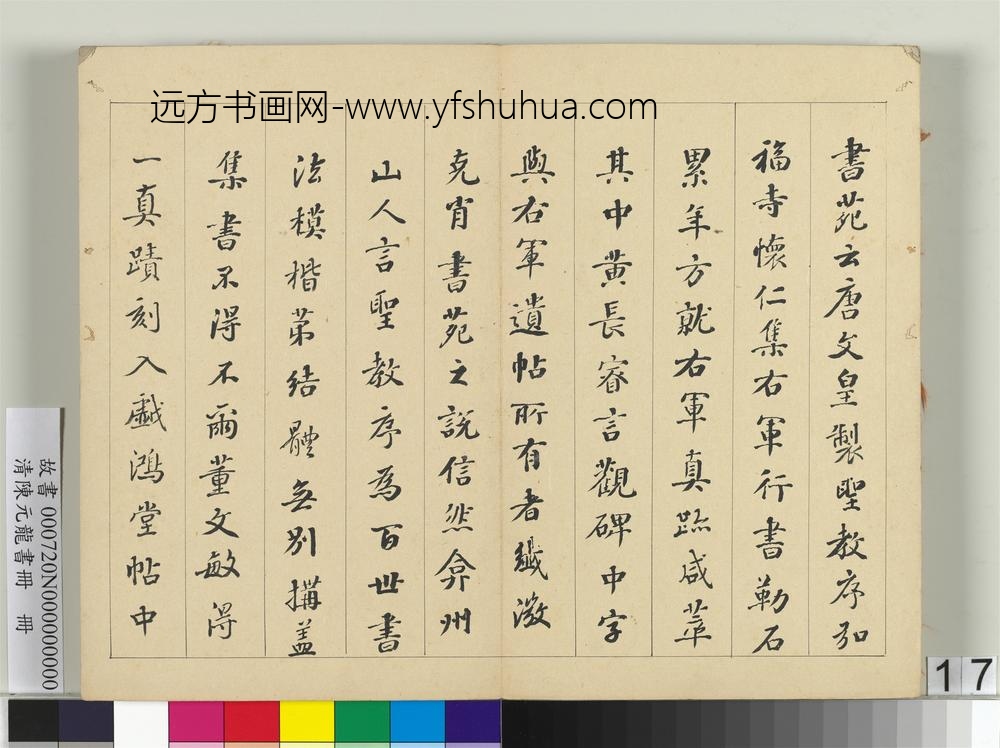 远方书画网-www.yfshuhua.com
書苑云唐文皇製聖教序弘
福寺懷仁集右軍行書勒石
累年方就右軍真跡咸萃
其中黄長睿言觀碑中字
與右軍遺帖所有者纖微
克肖書苑之説信然弇州
山人言聖教序為百世書
法模楷苐結體無别搆盖
集書不得不爾董文敏得
一真蹟刻入戲鴻堂帖中
故書 000720N000000000
清陳元龍書冊 冊
17